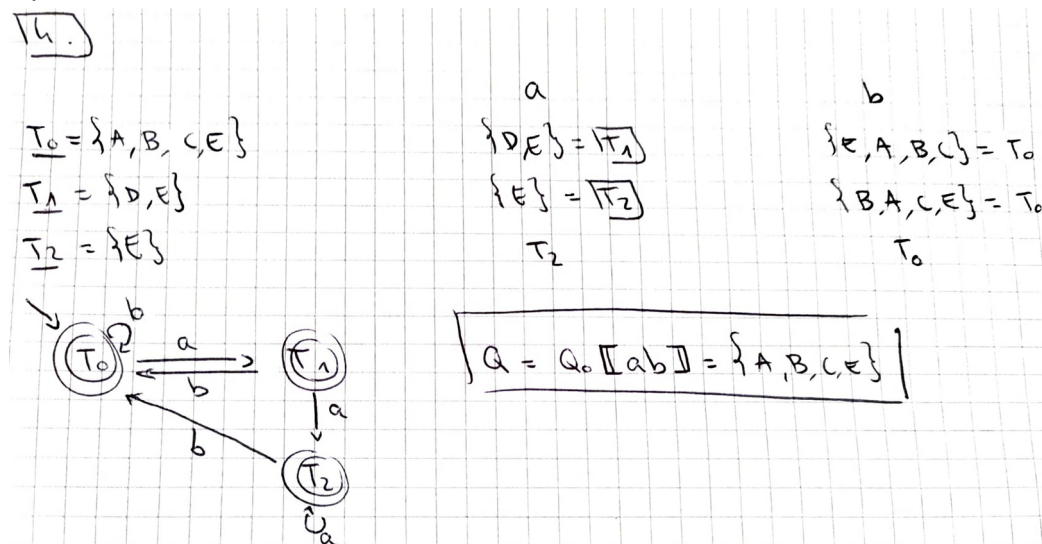 4.
a b
T₀ = {A, B, C, E} {D, E} = T₁ {E, A, B, C} = T₀
T₁ = {D, E} {E} = T₂ {B, A, C, E} = T₀
T₂ = {E} T₂ T₀
b
T₀ a T₁
b
a
b
T₂
a
Q = Q₀ ⟦ab⟧ = {A, B, C, E}